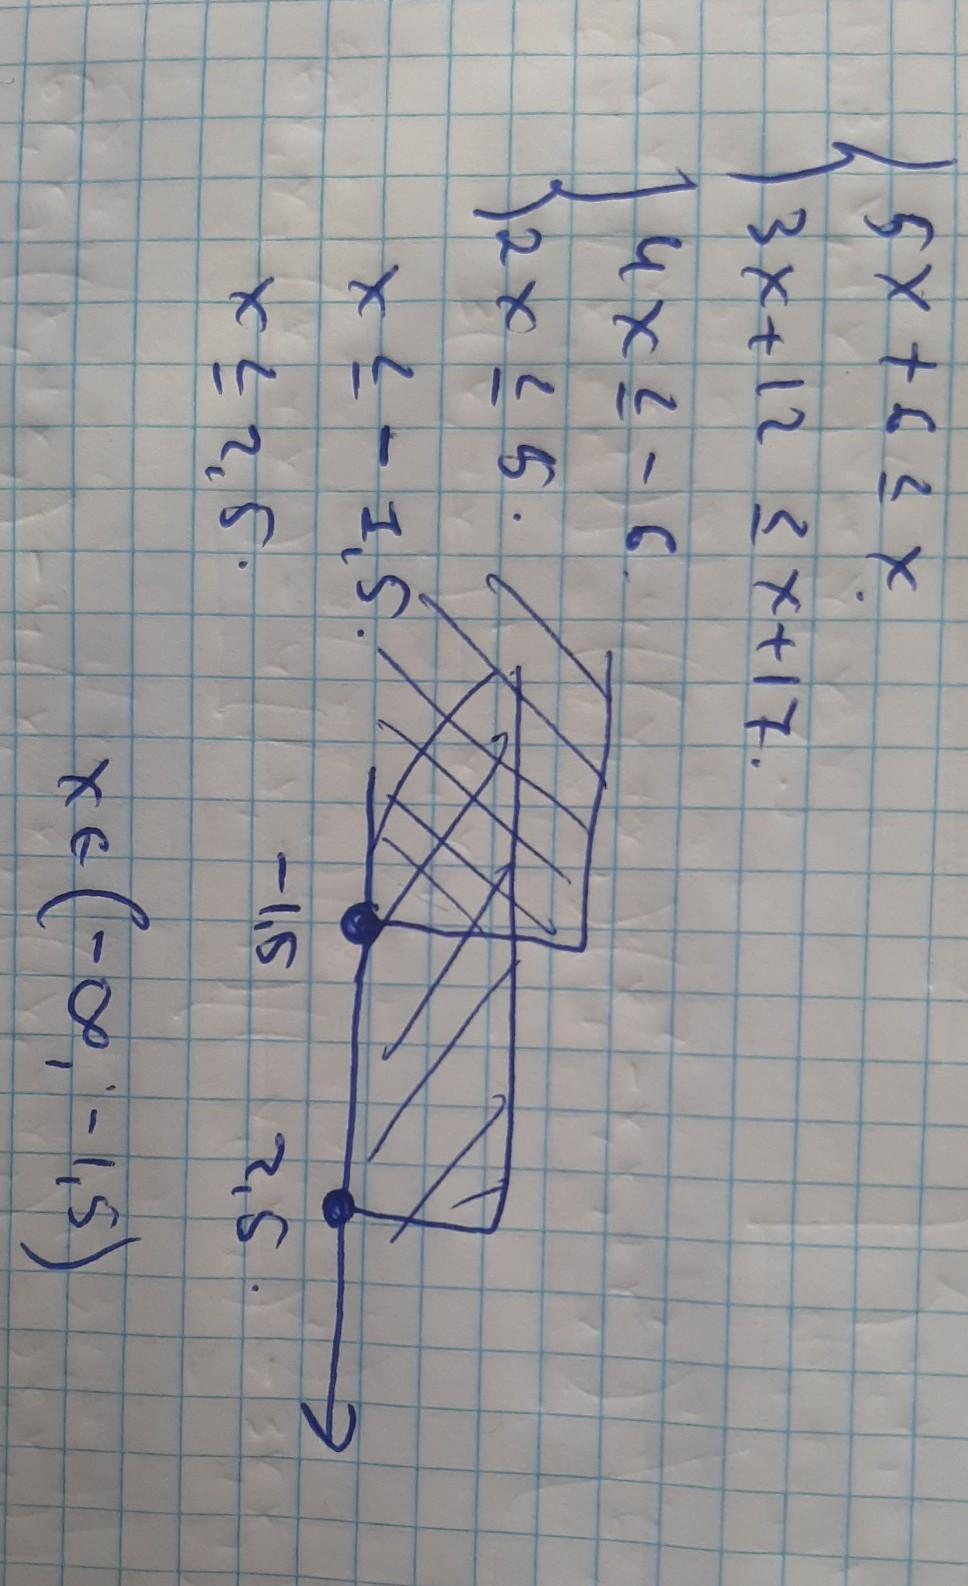 { 5x + 6 ≤ x.
3x + 12 ≤ x + 17.
{ 4x ≤ - 6.
2x ≤ 5.
x ≤ - 1,5.
x ≤ 2,5.
-1,5 2,5.
x ∈ (-∞; -1,5)